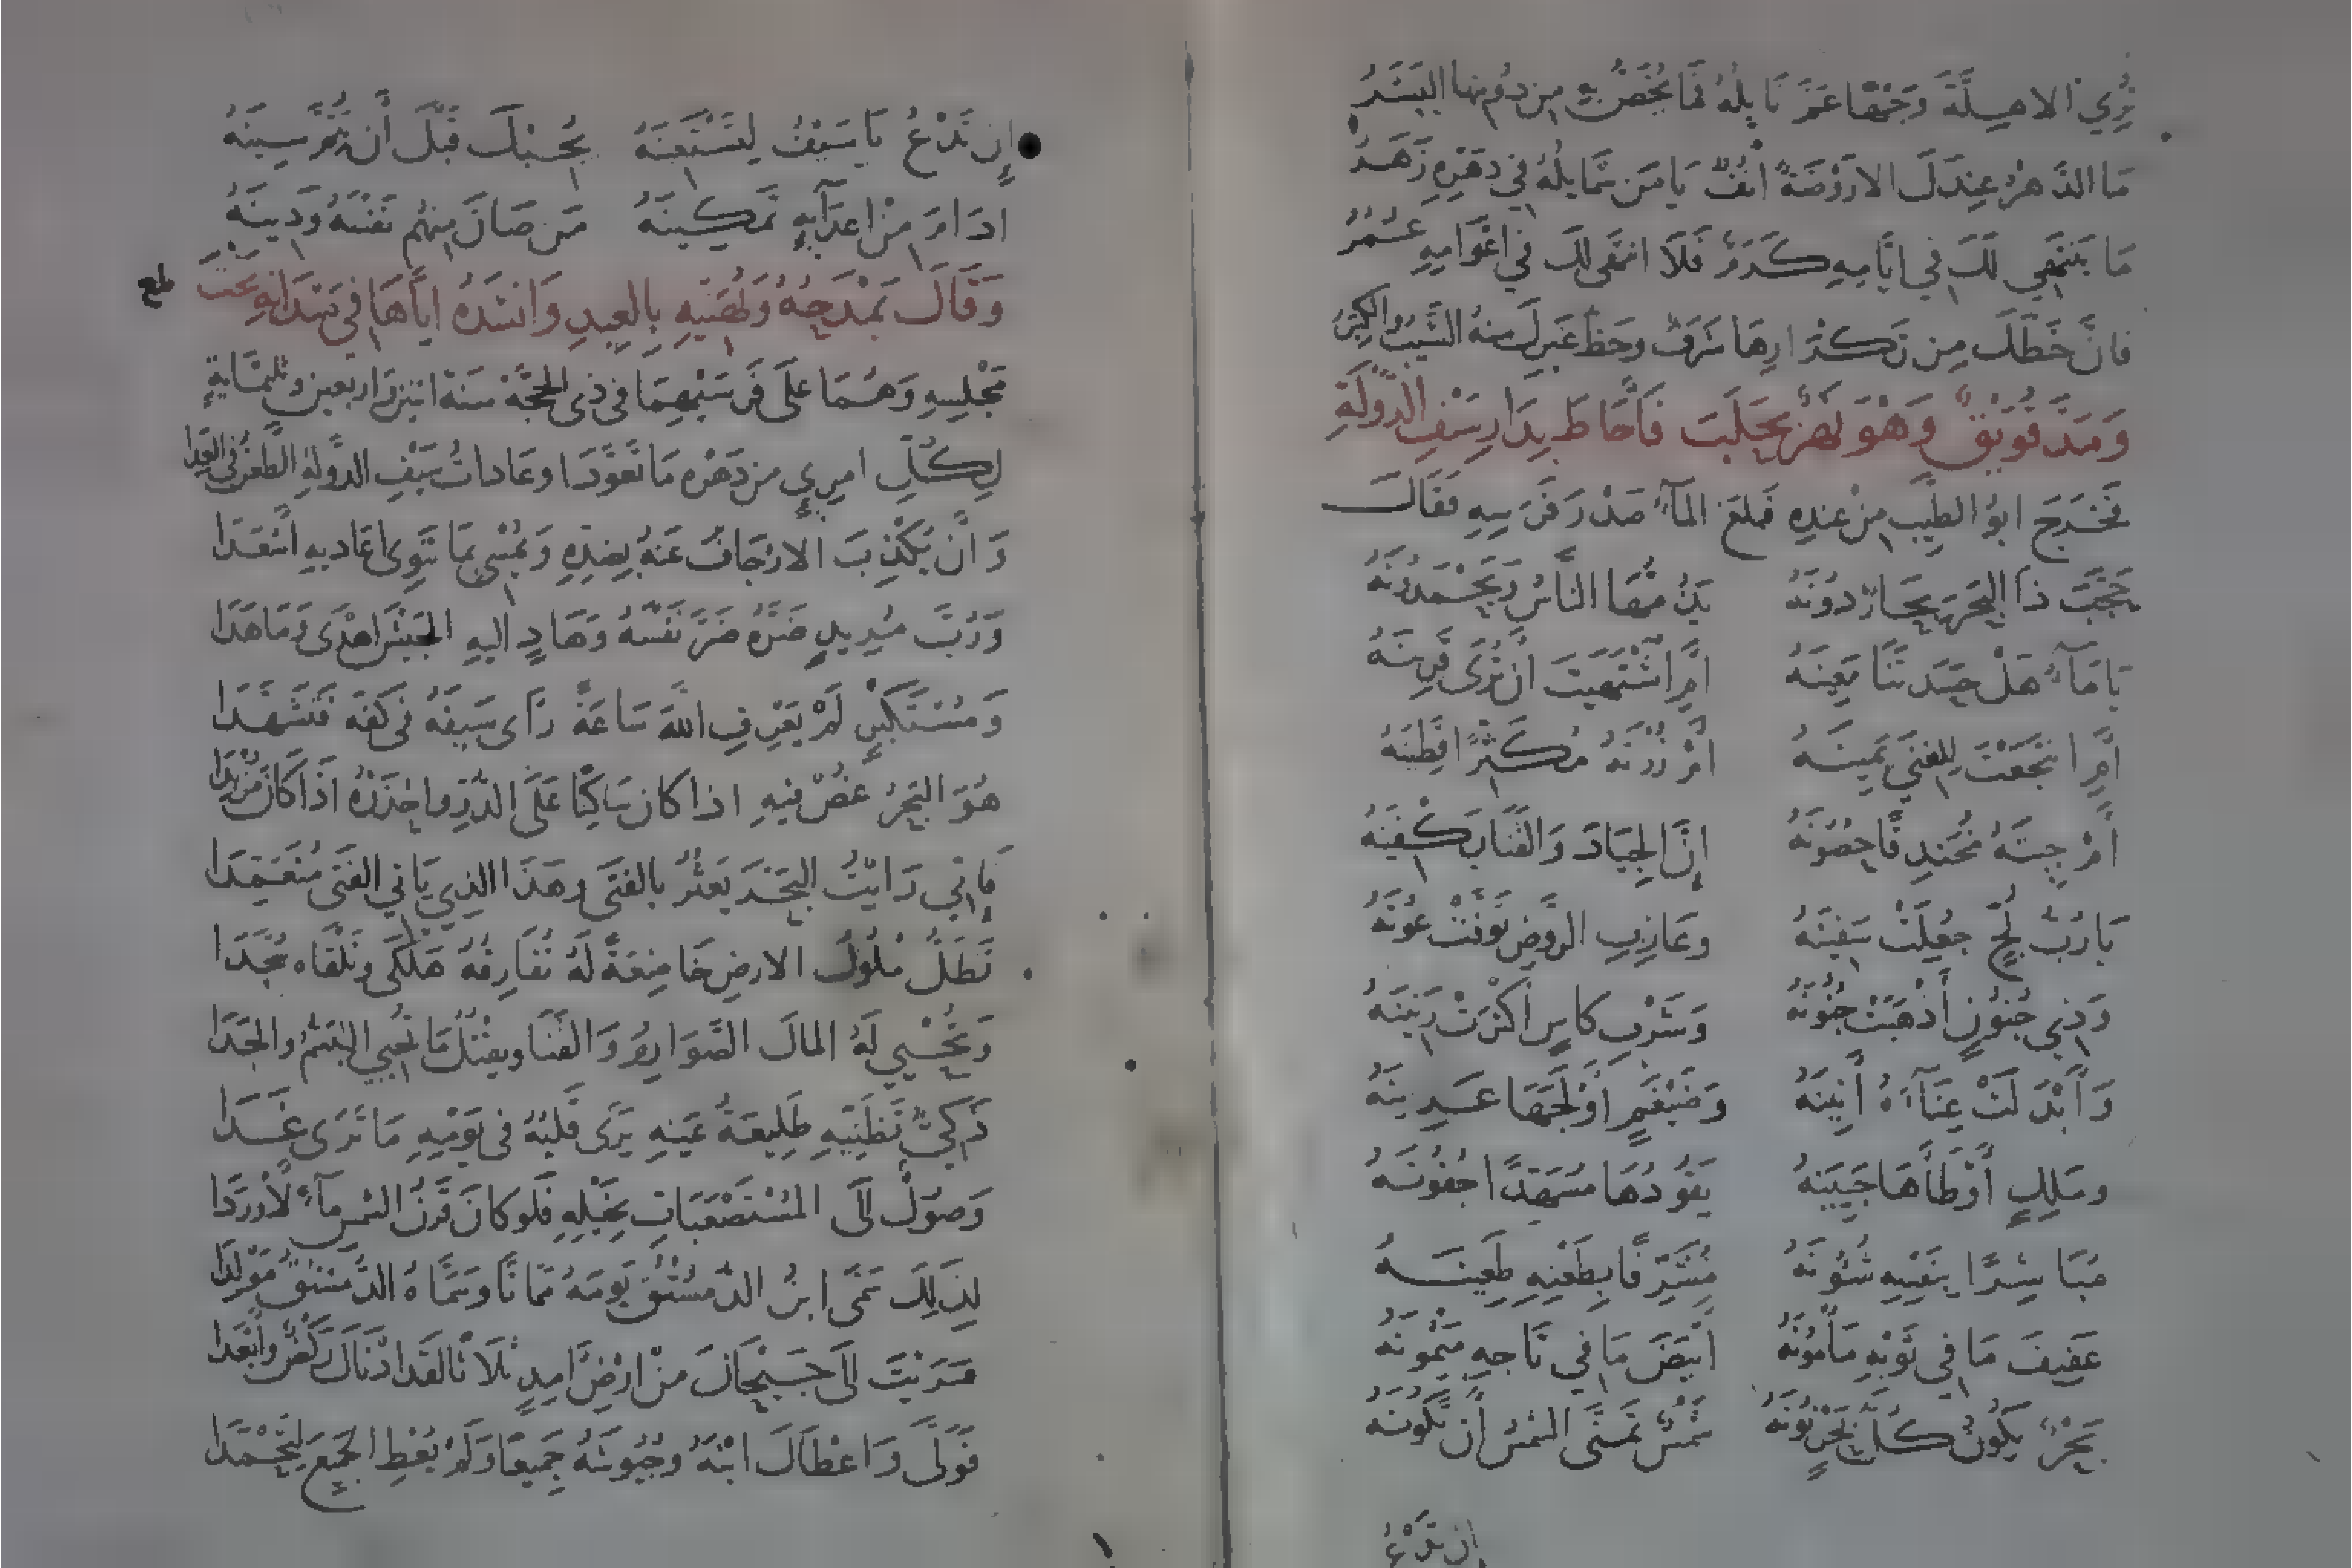 تُرِي الاهِلَّةَ وَجْهًا عَمَّ نَايِلُهُ فَمَا يُخَصُّ بِهِ مِن دُونِهَا البَشَرُ
مَا الدَّهْرُ عِندَكَ الا رَوْضَةٌ أُنُفٌ يَا مَن شَمَايِلُهُ فِي دَهْرِهِ زَهَرُ
مَا يَنتَهِي لَكَ فِي ايَّامِهِ كَرَمٌ فَلَا انتَهَى لَكَ فِي اعْوَامِهِ عُمُرُ
فَانَّ حَظَّكَ مِن تَكْرَارِهَا شَرَفٌ وَحَظُّ غَيرِكَ منهُ الشَّيبُ والكِبَرُ
وَمَدَّ قُوَيْقٌ وَهْوَ نَهْرٌ بِحَلَبَ فَأَحَاطَ بِدَارِ سَيْفِ الدَّوْلَةِ
فَخَرَجَ ابُو الطَّيِّبِ مِنْ عِندِهِ فَبَلَغَ المَآءُ صَدْرَ فَرَسِهِ فَقَالَ
حَجَّبَ ذَا البَحْرَ بِحَارٌ دُونَهُ يَذُمُّهَا النَّاسُ وَيَحْمَدُونَهُ
يَا مَآءُ هَلْ حَسَدتَنَا مَعِينَهُ أَمِ اشْتَهَيتَ أَن تُرَى قَرِينَهُ
أَمِ انتَجَعْتَ لِلغِنَى يَمِينَهُ أَمْ زُرْتَهُ مُكَثِّرًا قَطِينَهُ
أَمْ جِئتَهُ مُخَندِقًا حُصُونَهُ إِنَّ الجِيَادَ وَالقَنَا يَكْفِينَهُ
يَا رُبَّ لُجٍّ جُعِلَتْ سَفِينَهُ وَعَازِبِ الرَّوضِ تَوَفَّتْ عُونَهُ
وَذِي جُنُونٍ أَذْهَبَتْ جُنُونَهُ وَشَرْبِ كَاسٍ أَكْثَرَتْ رَنِينَهُ
وَأَبْدَلَتْ غِنَآءَهُ أَنِينَهُ وَضَيْغَمٍ أَوْلَجَهَا عَرِينَهُ
وَمَلِكٍ أَوْطَأَهَا جَبِينَهُ يَقُودُهَا مُسَهِّدًا جُفُونَهُ
مُبَاشِرًا بِنَفْسِهِ شُئُونَهُ مُشَرِّفًا بِطَعْنِهِ طَعِينَهُ
عَفِيفَ مَا فِي ثَوْبِهِ مَأْمُونَهُ أَبْيَضَ مَا فِي تَاجِهِ مَيْمُونَهُ
بَحْرٌ يَكُونُ كُلُّ بَحْرٍ نُونَهُ شَمْسٌ تَمَنَّى الشَّمْسُ أَن تَكُونَهُ
إِن تَدْعُ
إِن تَدْعُ يَا سَيْفُ لِتَسْتَعِينَهُ يُجِبْكَ قَبْلَ أَن تُتِمَّ سِينَهُ
ادَامَ مِنْ اعدَآيِهِ تَمكِينَهُ مَن صَانَ مِنهُم نَفْسَهُ وَدِينَهُ
وَقَالَ يَمْدَحُهُ وَيُهَنِّيهِ بِالعِيدِ وَانشَدَهُ ايَّاهَا فِي مَيْدَانِهِ تَحْتَ
مَجْلِسِهِ وَهُمَا عَلَى فَرَسَيْهِمَا فِي ذِي الحِجَّةْ سَنَة اثنين واربعين وثلثمايةٍ
لِكُلِّ امرِيٍ مِن دَهْرِهِ مَا تَعَوَّدَا وَعَادَاتُ سَيْفِ الدَّولَةِ الطَّعْنُ فِي العِدَا
وَأَن يُكْذِبَ الارْجَافَ عَنهُ بِضِدِّهِ وَيُمْسِي بِمَا تَنوِي اعَادِيهِ أَسْعَدَا
وَرُبَّ مُرِيدٍ ضَرَّهُ ضَرَّ نَفْسَهُ وَهَادٍ اليهِ الجَيْشَ اهْدَى وَمَا هَدَا
وَمُسْتَكْبِرٍ لَمْ يَعْرِفِ اللهَ سَاعَةً رَأَى سَيفَهُ فِي كَفِّهِ فَتَشَهَّدَا
هُوَ البَحْرُ غُصْ فِيهِ اذَا كَانَ سَاكِنًا عَلَى الدُّرِّ وَاحْذَرْهُ اذَا كَانَ مُزْبِدَا
فَإِنِّي رَايْتُ البَحْرَ يَعثُرُ بالفَتَى وَهَذَا الَّذِي يَاتِي الفَتَى مُتَعَمِّدَا
تَظَلُّ مُلُوكُ الارضِ خَاضِعَةً لَهُ تُفَارِقُهُ هَلْكَى وَتَلْقَاه سُجَّدَا
وَتُحْيِي لَهُ المَالَ الصَّوَارِمُ وَالقَنَا وَيقتُلُ مَا تُحْيِي التَّبَسُّمُ وَالجَدَا
ذَكِيٌّ تَظَنِّيهِ طَلِيعَةُ عَينِهِ يَرَى قَلبُهُ فِي يَوْمِهِ مَا تَرَى غَدَا
وَصُولٌ الَى المُسْتَصْعَبَاتِ بِخَيْلِهِ فَلَو كَانَ قَرْنُ الشَّمسِ مَآءً لَأَورَدَا
لِذَلِكَ سَمَّى ابنُ الدُّمُسْتُقِ يَومَهُ مَمَاتًا وَسَمَّاهُ الدُّمُسْتُقُ مَوْلِدَا
سَرَيْتَ الَى جَيْحَانَ مِنْ ارْضِ آمِدٍ ثَلَاثًا لَقَد ادْنَاكَ رَكْضٌ وَأَبْعَدَا
فَوَلَّى وَاعْطَاكَ ابْنَهُ وَجُيُوشَهُ جَمِيعًا وَلَمْ يُعْطِ الجَمِيعَ لِيُحْمَدَا